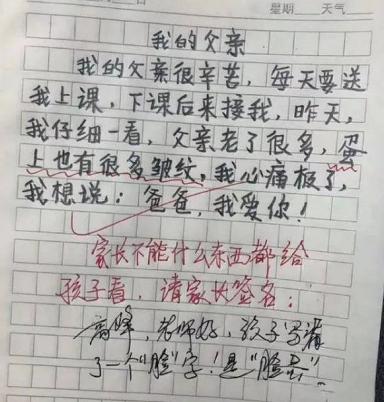 星期 天气
我的父亲
我的父亲很辛苦，每天要送
我上课，下课后来接我，昨天，
我仔细一看，父亲老了很多，蛋
上也有很多皱纹，我心痛极了，
我想说：爸爸，我爱你！
家长不能什么东西都给
孩子看，请家长签名：
高峰，老师好，孩子写错
了一个"脸"字！是"脸蛋"